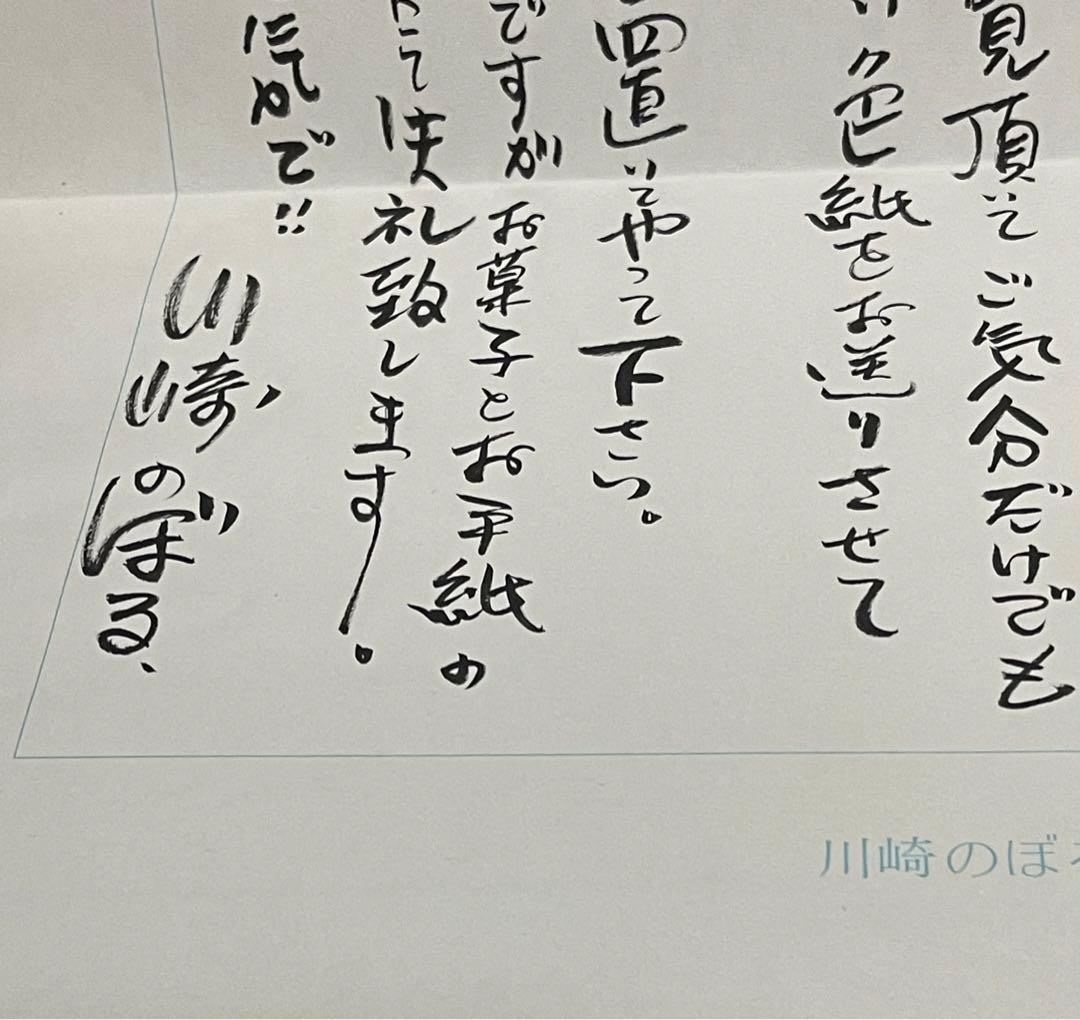 覧頂いて ご気分だけでも
色紙をお送りさせて
置いてやって下さい。
ですが お菓子とお手紙の
にて失礼致します。
にやかで!!
川崎のぼる、
川崎のぼ